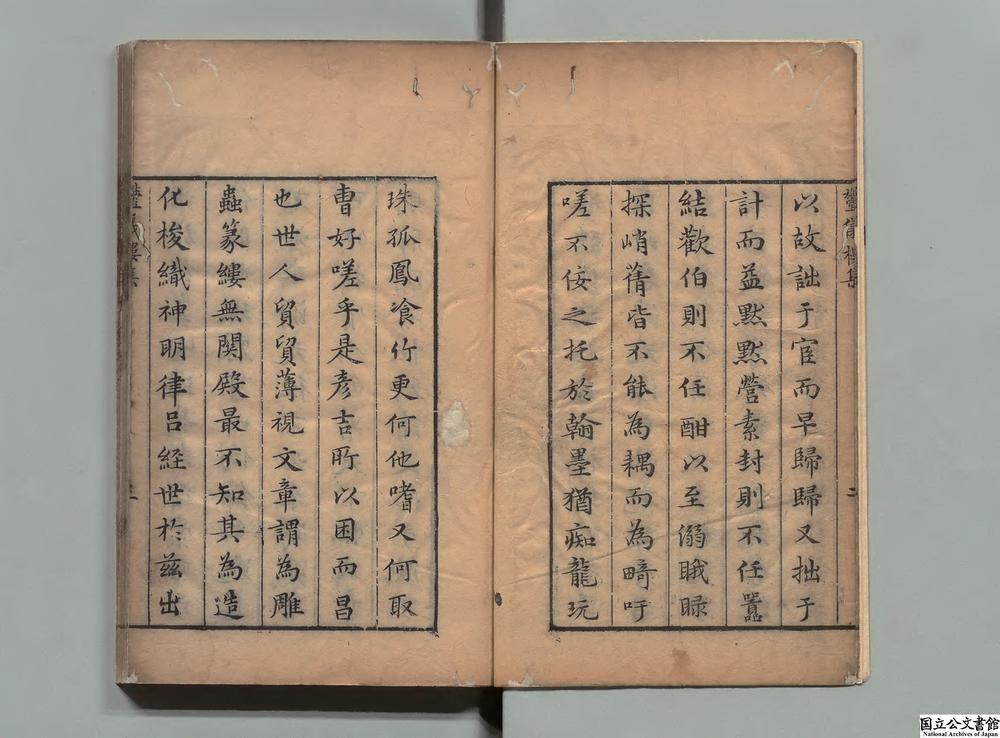 以故詘于宦而早歸歸又拙于
計而益黙黙營素封則不任囂
結歡伯則不任酣以至溺眂睩
探峭蒨皆不能為耦而為畸吁
嗟不佞之托於翰墨猶痴龍玩
珠孤鳳飡竹更何他嗜又何取
曹好嗟乎是彦吉所以困而昌
也世人貿貿薄視文章謂為雕
蟲篆縷無関殿最不知其為造
化梭織神明律呂経世於兹出
国立公文書館
National Archives of Japan